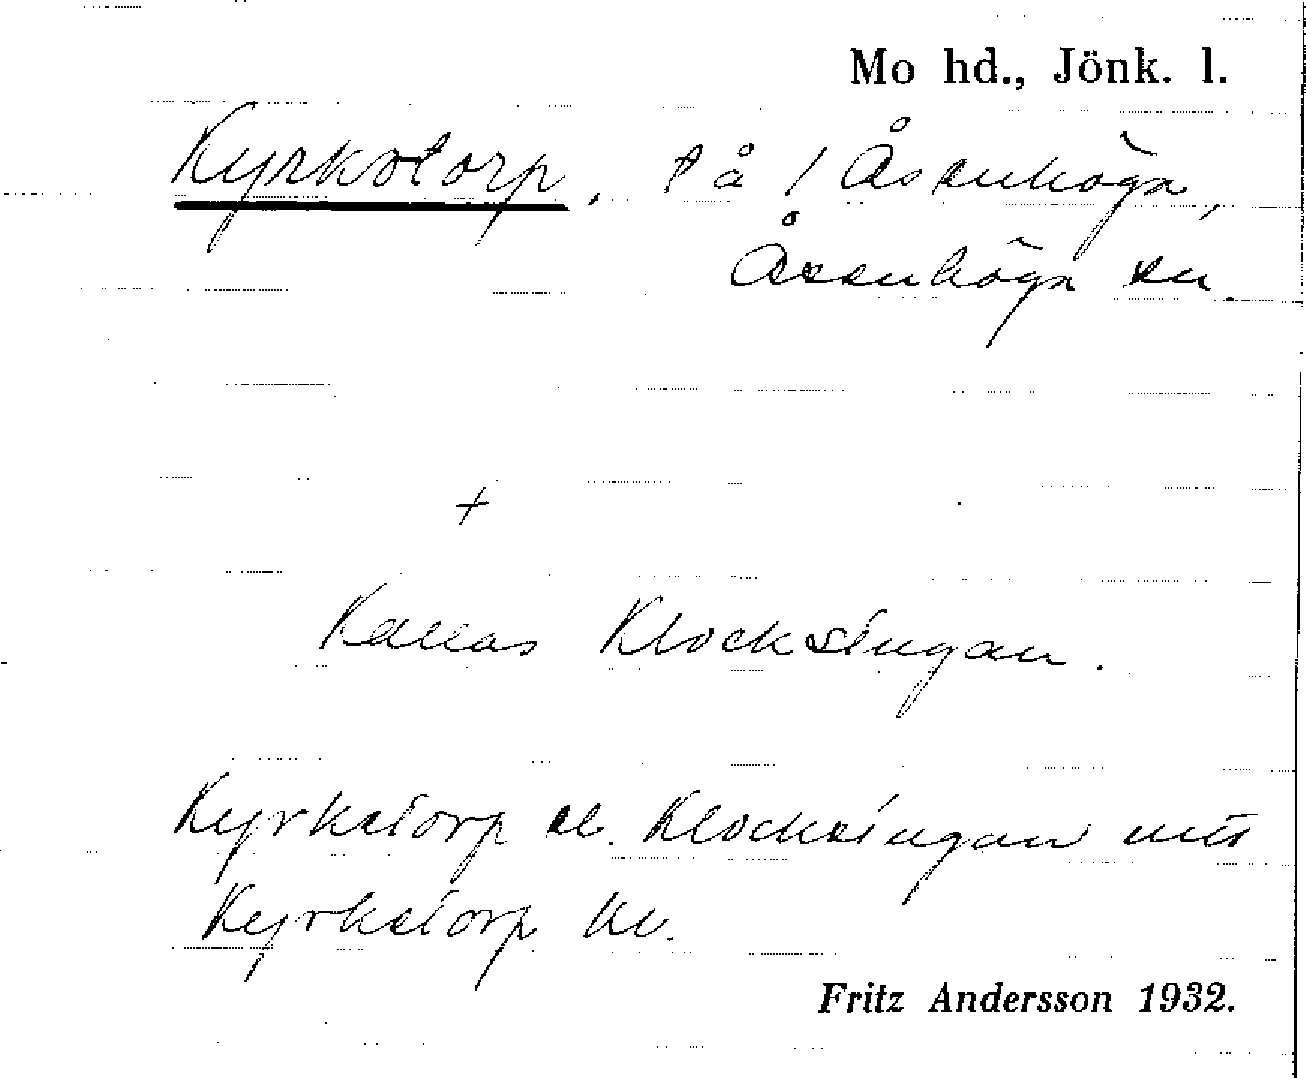 Mo hd., Jönk. l.
Kyrkotorp, på 1 Åsenhöga,
Åsenhöga sn.
+
Kallas Klockstugan.
Kyrkstorp el. Klockstugan
Kyrkstorp
Fritz Andersson 1932.